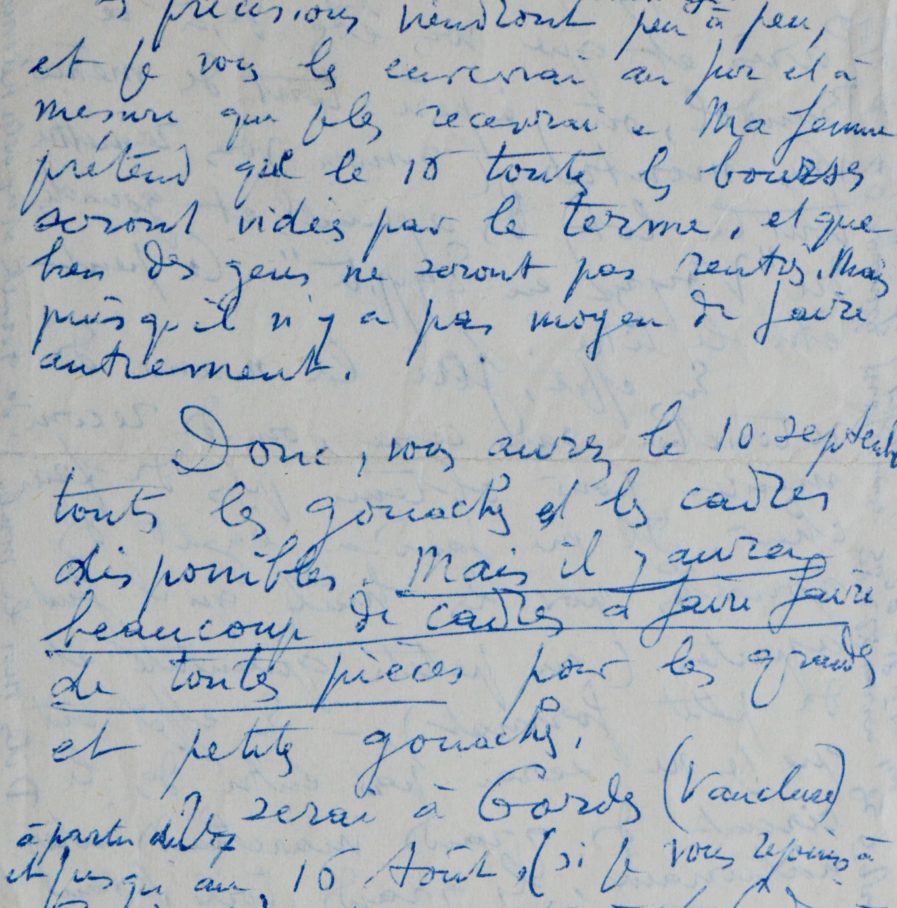 précisions viendront peu à peu,
et je vous les enverrai au fur et à
mesure que je les recevrai. Ma femme
prétend que le 15 toutes les bourses
seront vidées par le terme, et que
bien des gens ne seront pas rentrés. Mais
puisqu'il n'y a pas moyen de faire
autrement.
Donc, vous aurez le 10 septembre
toutes les gouaches et les cadres
disponibles. Mais il y aura
beaucoup de cadres à faire faire
de toutes pièces pour les grandes
et petites gouaches.
Je serai à Gordes (Vaucluse)
à partir du 27
et jusqu'au 15 Août, (si je vous rejoins à